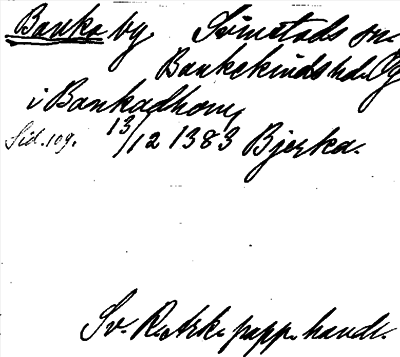 Banka by Svinstads sn.
Bankekinds hd. Ög
i Bankadhom
Sid. 109. 13/12 1383 Bjerka.
Sv. R. Ark. papp. handl.